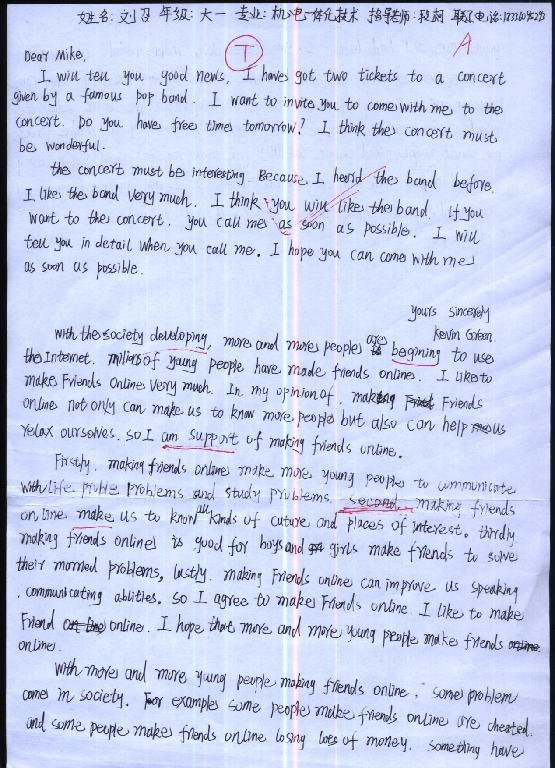 姓名: 刘 年级: 大一 专业: 机电一体化技术 指导老师: 段 联系电话:
T A
Dear Mike,
I will tell you good news, I have got two tickets to a concert
given by a famous pop band. I want to invite you to come with me to the
concert. Do you have free times tomorrow? I think the concert must
be wonderful.
the concert must be interesting. Because I heard the band before.
I like the band very much. I think you will like the band. If you
want to the concert. you call me as soon as possible. I will
tell you in detail when you call me. I hope you can come with me
as soon as possible.
yours sincerely
Kevin Green.
with the society developing, more and more peoples are begining to use
the Internet. of young people have made friends online. I like to
make Friends online very much. In my opinion of, making Friends
online not only can make us to know more people but also can help us
relax ourselves. So I am support of making friends online.
Firstly, making friends online make more young people to communicate
with life problems and study problems. second, making friends
online make us to know all kinds of cuture and places of interest. thirdly
making friends online is good for boys and girls make friends to solve
their problems, lastly. making Friends online can improve us speaking
. communicating ablities. So I agree to make Friends online. I like to make
Friend online. I hope that more and more young people make friends
online.
with more and more young people making friends online, some problem
come in society. For examples some people make friends online are cheated.
and some people makes friends online losing lots of money. something have